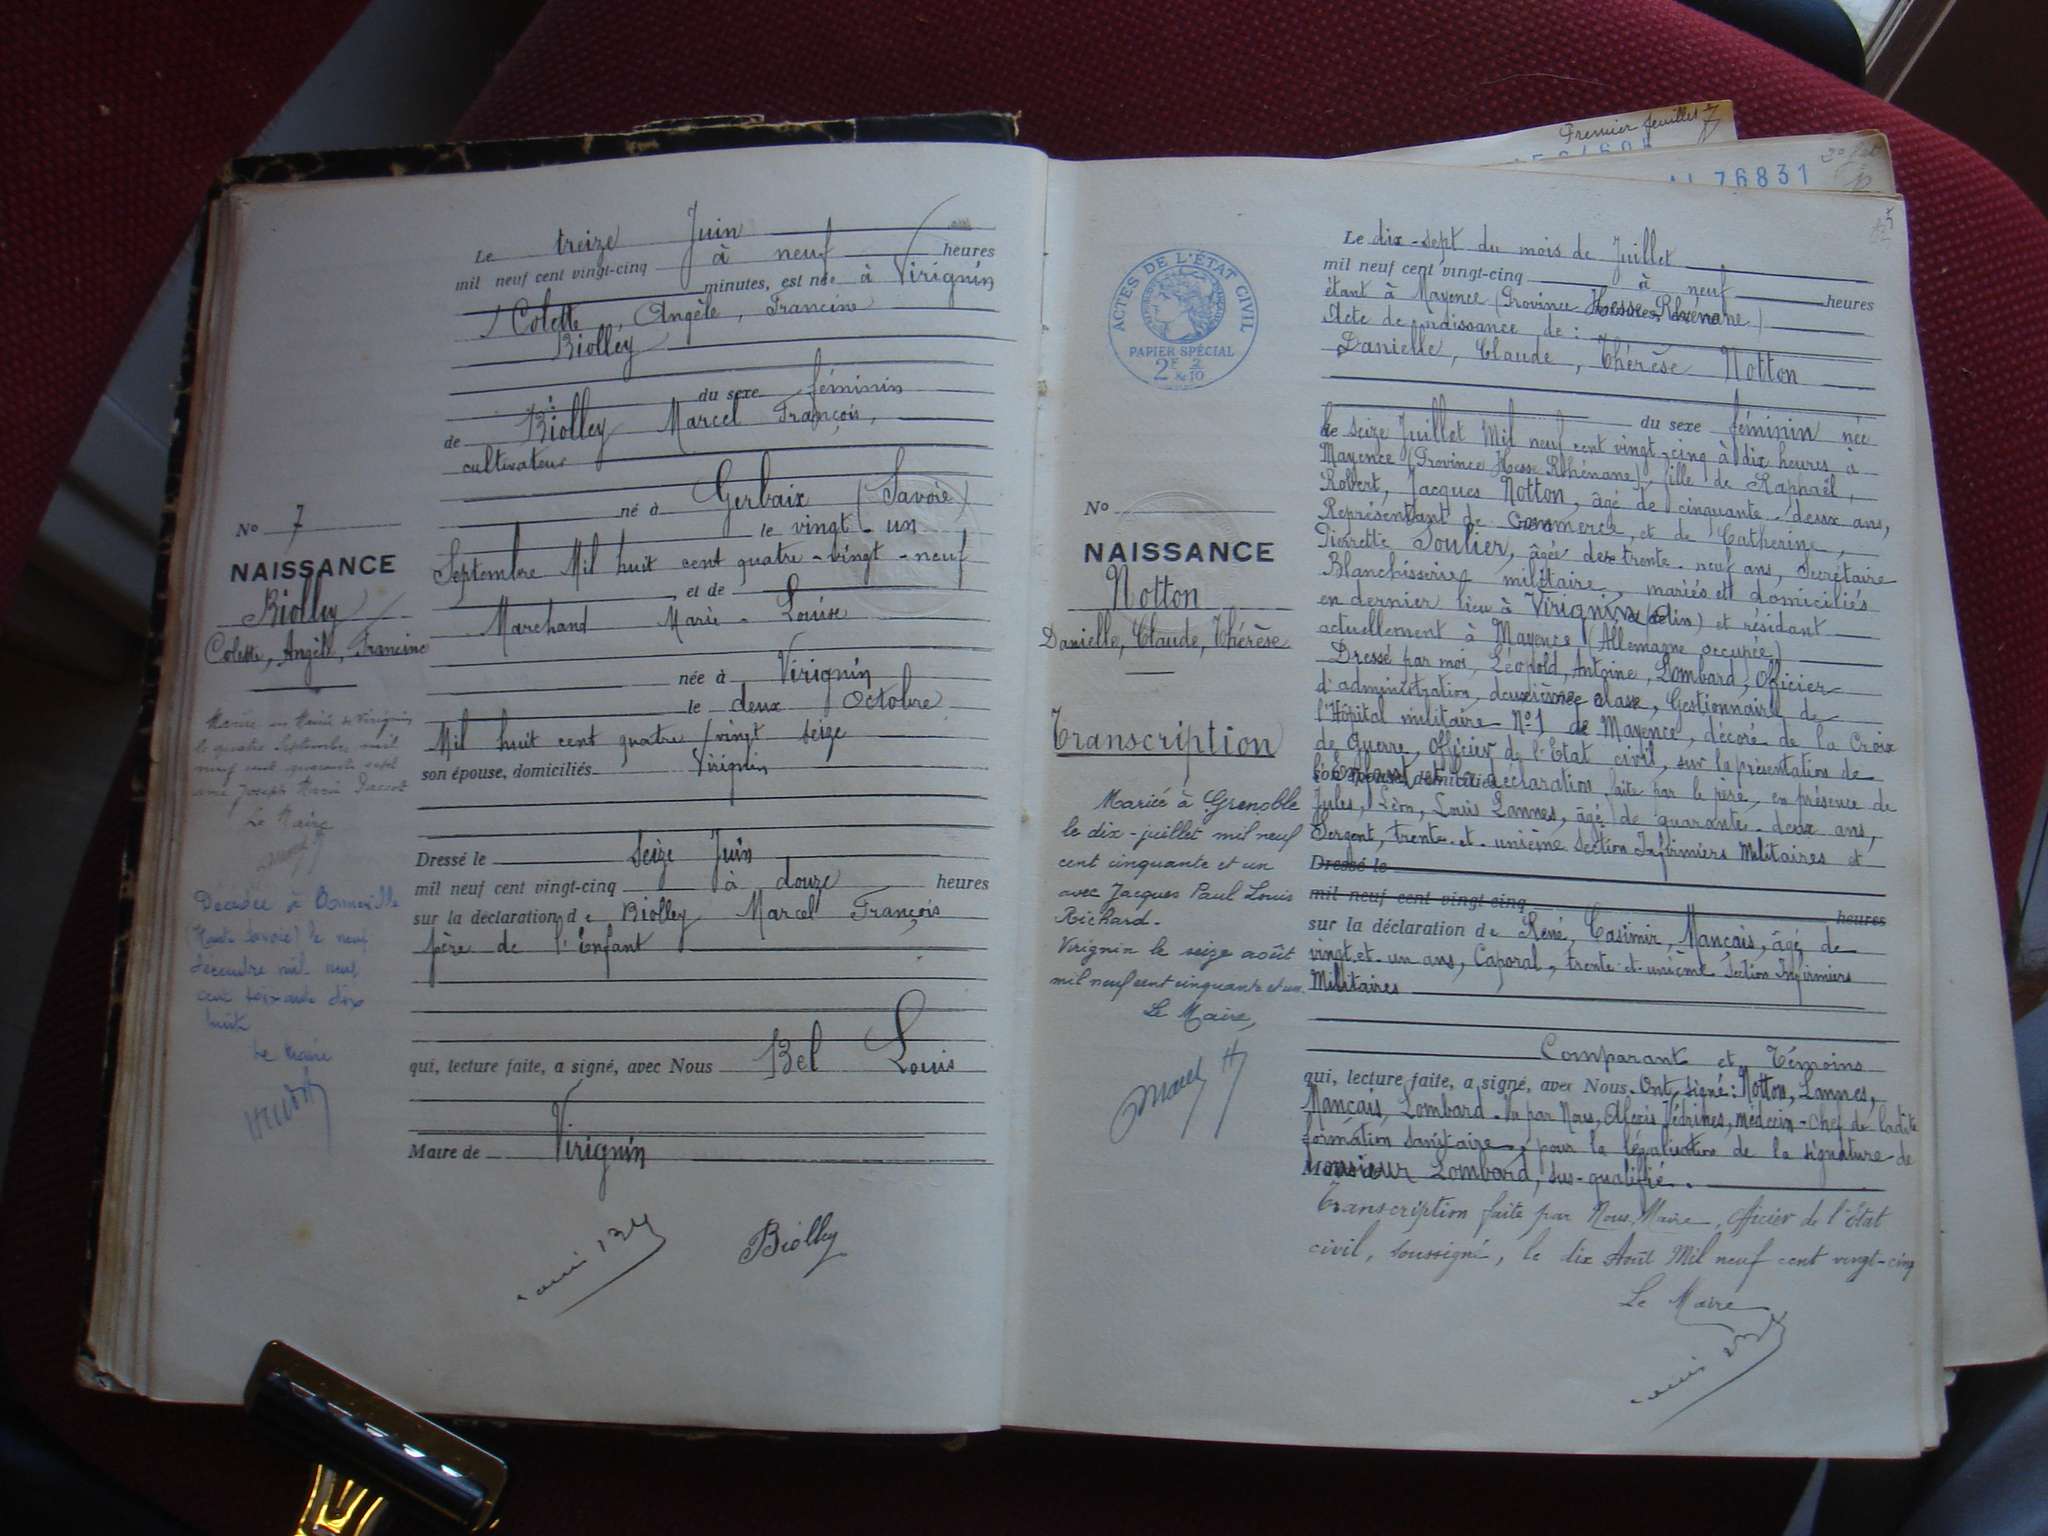 Le treize Juin
mil neuf cent vingt-cinq à neuf heures
minutes, est née à Virignin
Colette, Angèle, Francine
Biolley
du sexe féminin
de Biolley Marcel François,
cultivateur
né à Gerbaix (Savoie)
le vingt-un
Septembre Mil huit cent quatre-vingt-neuf
et de
Marchand Marie-Louise
née à Virignin
le deux Octobre
Mil huit cent quatre vingt seize
son épouse, domiciliés Virignin
Dressé le Seize Juin
mil neuf cent vingt-cinq à douze heures
sur la déclaration de Biolley Marcel François
père de l'Enfant
qui, lecture faite, a signé, avec Nous Bel Louis
Maire de Virignin
Biolley
No 7
NAISSANCE
Biolley
Colette, Angèle, Francine
Mariée en Mairie de Virignin
le quatre Septembre mil
neuf cent quarante sept
avec Joseph Marie
Le Maire
Décédée à Bonneville
(Haute Savoie) le neuf
décembre mil neuf
cent soixante dix
huit
Le Maire
Premier feuillet 7
76831
5
ACTES DE L'ÉTAT CIVIL
PAPIER SPÉCIAL
2F & 2/10
No
NAISSANCE
Notton
Danielle, Claude, Thérèse
Transcription
Mariée à Grenoble
le dix-juillet mil neuf
cent cinquante et un
avec Jacques Paul Louis
Richard.
Virignin le seize août
mil neuf cent cinquante et un.
Le Maire,
Le dix-sept du mois de Juillet
mil neuf cent vingt-cinq à neuf heures
étant à Mayence (Province Hesse Rhénane)
Acte de naissance de:
Danielle, Claude, Thérèse Notton
du sexe féminin née
le seize Juillet Mil neuf cent vingt-cinq à dix heures à
Mayence (Province Hesse Rhénane), fille de Raphaël,
Robert, Jacques Notton, âgé de cinquante-deux ans,
Représentant de commerce, et de Catherine,
Pierrette Soulier, âgée de trente-neuf ans, Secrétaire
Blanchisserie militaire, mariés et domiciliés
en dernier lieu à Virignin (Ain) et résidant
actuellement à Mayence (Allemagne occupée)
Dressé par moi, Léopold, Antoine, Lombard, Officier
d'administration, deuxième classe, Gestionnaire de
l'Hôpital militaire No 1 de Mayence, décoré de la Croix
de Guerre, Officier de l'Etat civil, sur la présentation de
l'enfant et la déclaration faite par le père, en présence de
Jules, Léon, Louis Lannes, âgé de quarante-deux ans,
Sergent, trente-et-unième Section Infirmiers Militaires et
Dressé le
mil neuf cent vingt-cinq heures
sur la déclaration de René, Casimir, Mançais, âgé de
vingt-et-un ans, Caporal, trente-et-unième Section Infirmiers
Militaires
Comparant et Témoins
qui, lecture faite, a signé, avec Nous. Ont signé: Notton, Lannes,
Mançais, Lombard. Vu par Nous, Alexis Védrines, médecin-Chef de ladite
formation sanitaire, pour la légalisation de la signature de
Monsieur Lombard, sus-qualifié.
Transcription faite par Nous, Maire, Officier de l'Etat
civil, soussigné, le dix Août Mil neuf cent vingt-cinq
Le Maire